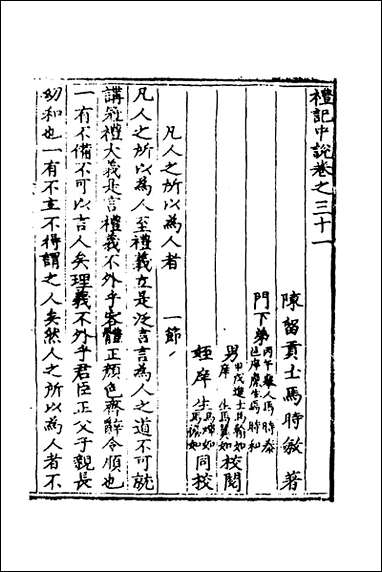 禮記中說卷之三十一
陳留貢士馬時敏著
門下弟丙午舉人馬時泰
邑庠廩生馬時和
男甲戌進士馬翰如
庠生馬翼如校閱
姪庠生馬如
馬如同校
凡人之所以為人者 一節
凡人之所以為人至禮義立是泛言言為人之道不可就
講冠禮大義是言禮義不外乎容體正顏色齊辭令順也
一有不備不可以言人矣理義不外乎君臣正父子親長
幼和也一有不立不得謂之人矣然人之所以為人者不